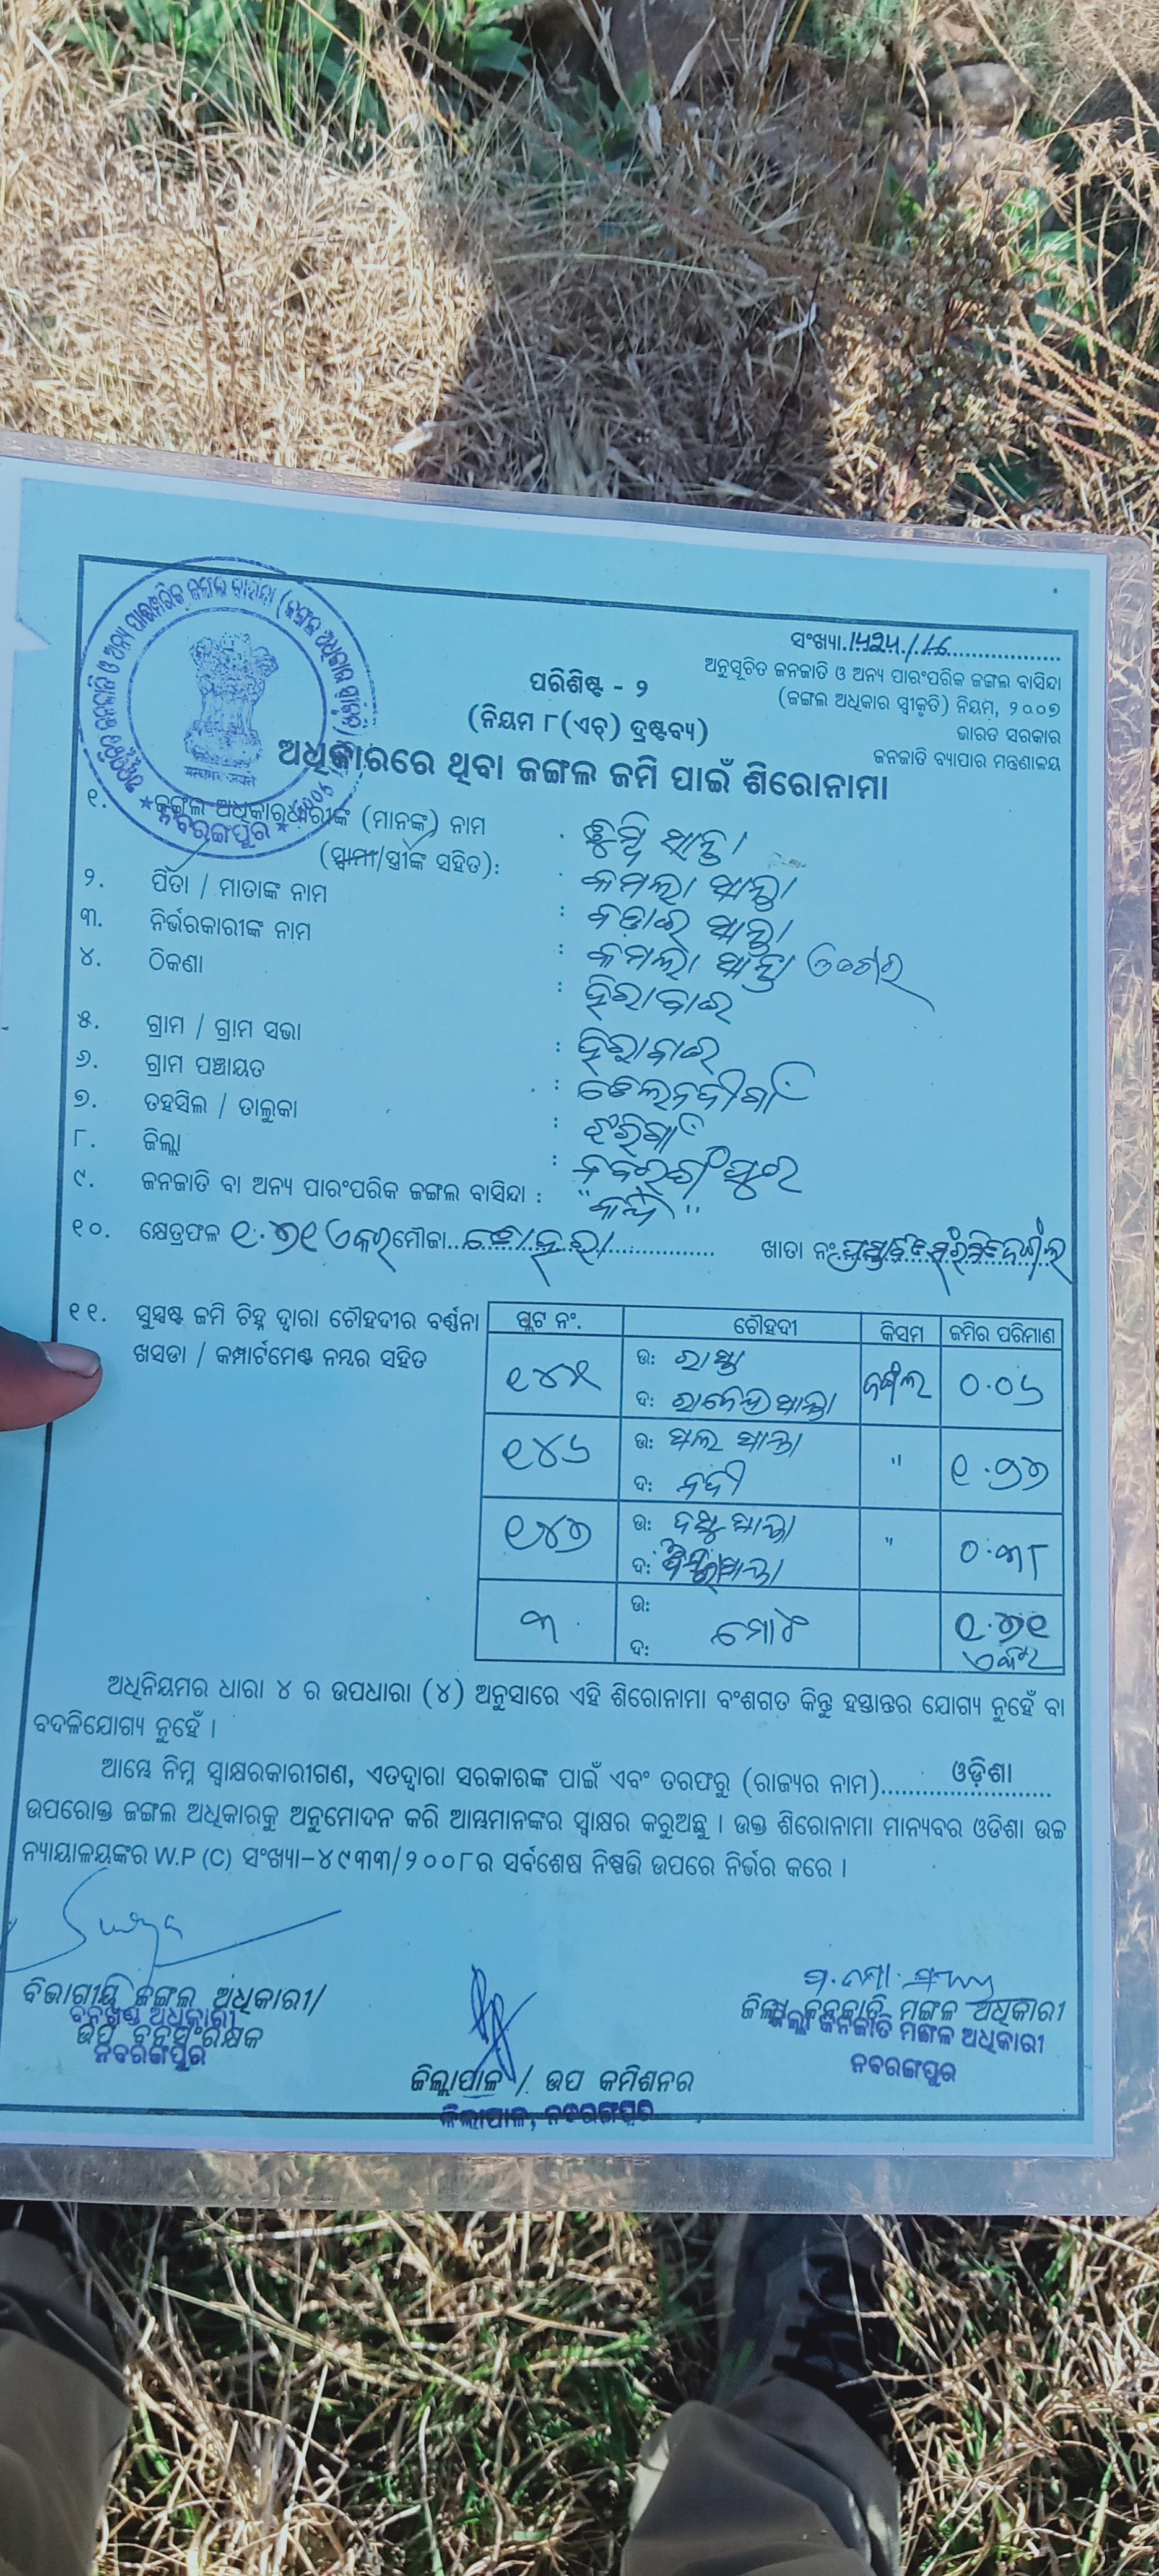 ସଂଖ୍ୟା.୧୫୨୫/୧୬
ଅନୁସୂଚିତ ଜନଜାତି ଓ ଅନ୍ୟ ପାରଂପରିକ ଜଙ୍ଗଲ ବାସିନ୍ଦା
(ଜଙ୍ଗଲ ଅଧିକାର ସ୍ୱୀକୃତି) ନିୟମ, ୨୦୦୭
ଭାରତ ସରକାର
ଜନଜାତି ବ୍ୟାପାର ମନ୍ତ୍ରଣାଳୟ
ପରିଶିଷ୍ଟ - ୨
(ନିୟମ ୮(ଏଚ୍) ଦ୍ରଷ୍ଟବ୍ୟ)
ଅଧିକାରରେ ଥିବା ଜଙ୍ଗଲ ଜମି ପାଇଁ ଶିରୋନାମା
ନବରଙ୍ଗପୁର
୧. ଜଙ୍ଗଲ ଅଧିକାରଧାରୀଙ୍କ (ମାନଙ୍କ) ନାମ :
(ସ୍ୱାମୀ/ସ୍ତ୍ରୀଙ୍କ ସହିତ): କମଳା ସାନ୍ତା
୨. ପିତା / ମାତାଙ୍କ ନାମ : ସାନ୍ତା
୩. ନିର୍ଭରକାରୀଙ୍କ ନାମ : କମଳା ସାନ୍ତା
୪. ଠିକଣା : ହିରାବାଇ
୫. ଗ୍ରାମ / ଗ୍ରାମ ସଭା : ହିରାବାଇ
୬. ଗ୍ରାମ ପଞ୍ଚାୟତ :
୭. ତହସିଲ / ତାଲୁକା : ଝରିଗାଁ
୮. ଜିଲ୍ଲା : ନବରଙ୍ଗପୁର
୯. ଜନଜାତି ବା ଅନ୍ୟ ପାରଂପରିକ ଜଙ୍ଗଲ ବାସିନ୍ଦା :
୧୦. କ୍ଷେତ୍ରଫଳ ୧.୭୧ ଏକର ମୌଜା ଖାତା ନଂ
୧୧. ସୁସ୍ପଷ୍ଟ ଜମି ଚିହ୍ନ ଦ୍ୱାରା ଚୌହଦୀର ବର୍ଣ୍ଣନା
ଖସଡା / କମ୍ପାର୍ଟମେଣ୍ଟ ନମ୍ବର ସହିତ
ପ୍ଲଟ ନଂ. ଚୌହଦୀ କିସମ ଜମିର ପରିମାଣ
୧୪୫ ଉ: ରାସ୍ତା ଜଙ୍ଗଲ ୦.୦୬
ଦ: ରାଜେନ୍ଦ୍ର ସାନ୍ତା
୧୪୬ ଉ: ସାନ୍ତା " ୧.୨୭
ଦ: ନଦୀ
୧୪୭ ଉ: ସାନ୍ତା " ୦.୩୮
ଦ: ସାନ୍ତା
୩ ଉ: ୧.୭୧
ଦ: ମୋଟ ଏକର
ଅଧିନିୟମର ଧାରା ୪ ର ଉପଧାରା (୪) ଅନୁସାରେ ଏହି ଶିରୋନାମା ବଂଶଗତ କିନ୍ତୁ ହସ୍ତାନ୍ତର ଯୋଗ୍ୟ ନୁହେଁ ବା
ବଦଳିଯୋଗ୍ୟ ନୁହେଁ ।
ଆମ୍ଭେ ନିମ୍ନ ସ୍ୱାକ୍ଷରକାରୀଗଣ, ଏତଦ୍ୱାରା ସରକାରଙ୍କ ପାଇଁ ଏବଂ ତରଫରୁ (ରାଜ୍ୟର ନାମ)..........ଓଡ଼ିଶା..........
ଉପରୋକ୍ତ ଜଙ୍ଗଲ ଅଧିକାରକୁ ଅନୁମୋଦନ କରି ଆମ୍ଭମାନଙ୍କର ସ୍ୱାକ୍ଷର କରୁଅଛୁ । ଉକ୍ତ ଶିରୋନାମା ମାନ୍ୟବର ଓଡିଶା ଉଚ୍ଚ
ନ୍ୟାୟାଳୟଙ୍କର W.P (C) ସଂଖ୍ୟା-୪୯୩୩/୨୦୦୮ର ସର୍ବଶେଷ ନିଷ୍ପତ୍ତି ଉପରେ ନିର୍ଭର କରେ ।
ବିଭାଗୀୟ ଜଙ୍ଗଲ ଅଧିକାରୀ/
ବନଖଣ୍ଡ ଅଧିକାରୀ
ଉପ ବନସଂରକ୍ଷକ
ନବରଙ୍ଗପୁର
ଜିଲ୍ଲାପାଳ / ଉପ କମିଶନର
ଜିଲ୍ଲାପାଳ, ନବରଙ୍ଗପୁର
ଜିଲ୍ଲା ଜନଜାତି ମଙ୍ଗଳ ଅଧିକାରୀ
ଜିଲ୍ଲା ଜନଜାତି ମଙ୍ଗଳ ଅଧିକାରୀ
ନବରଙ୍ଗପୁର